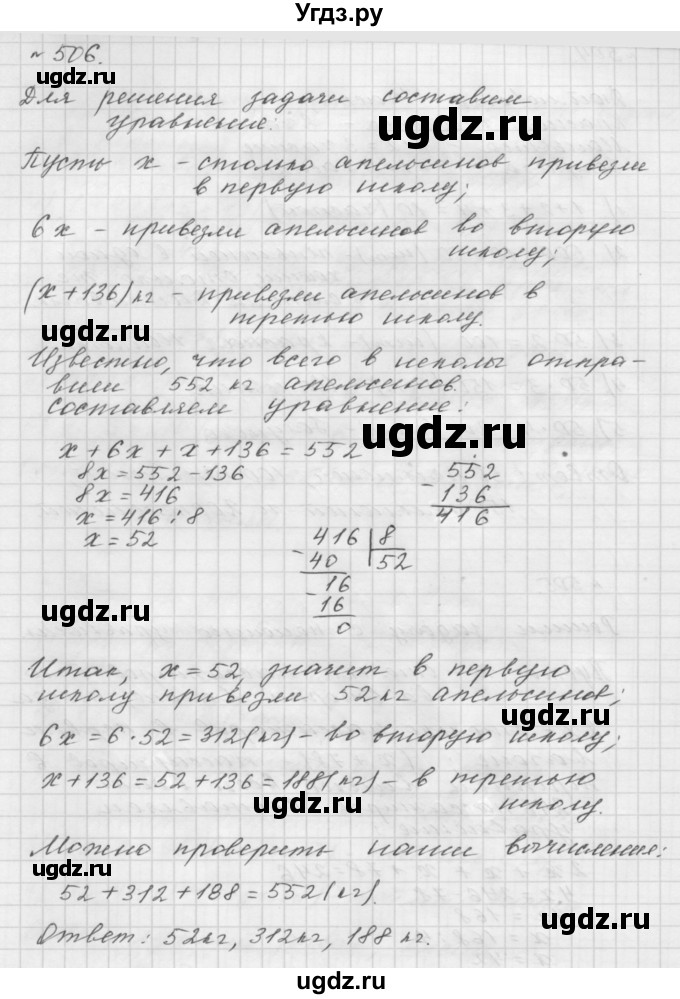 Угдз.ру
№ 506.
Для решения задачи составим
уравнение:
ugdz.ru
Пусть x - столько апельсинов привезли
в первую школу;
6x - привезли апельсинов во вторую
школу;
ugdz.ru
(x+136) кг - привезли апельсинов в
третью школу.
ugdz.ru
Известно, что всего в школы отпра-
вили 552 кг апельсинов.
Составляем уравнение:
ugdz.ru
x + 6x + x + 136 = 552
8x = 552 - 136
8x = 416
x = 416 : 8
x = 52
552
- 136
416
416 | 8
- 40 52
16
- 16
0
ugdz.ru
Итак, x = 52, значит в первую
школу привезли 52 кг апельсинов;
ugdz.ru
6x = 6 · 52 = 312 (кг) - во вторую школу;
x + 136 = 52 + 136 = 188 (кг) - в третью
школу.
ugdz.ru
Можно проверить наши вычисления:
52 + 312 + 188 = 552 (кг).
ugdz.ru
Ответ: 52 кг, 312 кг, 188 кг.
ugdz.ru